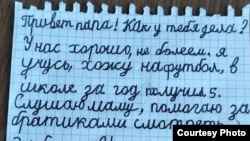 Привет папа! Как у тебя дела?
У нас хорошо, не болеем. я
учусь, хожу на футбол, в
школе за год получил 5.
Слушаю маму, помогаю за
братиками смотреть
Courtesy Photo